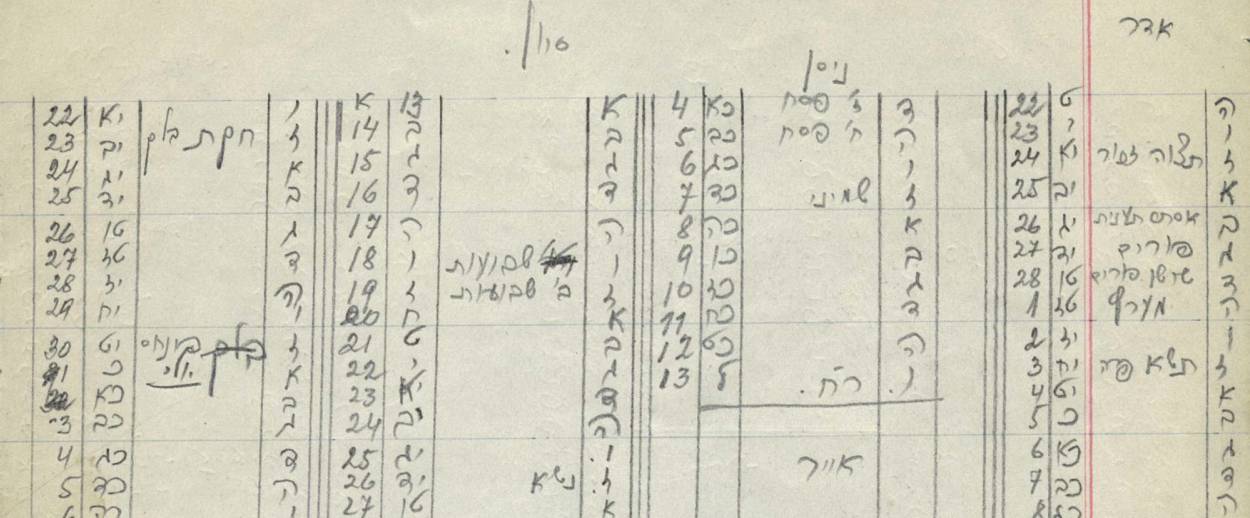 אדר
ה ט 22
ו י 23
ז תצוה זכור יא 24
א יב 25
ב אסתר תענית יג 26
ג פורים יד 27
ד שושן פורים טו 28
ה מערץ טז 1
ו יז 2
ז תשא פרה יח 3
א יט 4
ב כ 5
ג כא 6
ד כב 7
ה כג 8
ניסן
ד ז' פסח כא 4
ה ח' פסח כב 5
ו כג 6
ז שמיני כד 7
א כה 8
ב כו 9
ג כז 10
ד כח 11
ה כט 12
ו. ר"ח. ל 13
אייר
סיון.
א 13 א
ב ב 14
ג ג 15
ד ד 16
ה ה 17
ו שבועות ו 18
ז ב' שבועות ז 19
א ח 20
ב ט 21
ג י 22
ד יא 23
ה יב 24
ו. יג 25
ז. נשא יד 26
א טו 27
ו יא 22
ז חקת בלק יב 23
א יג 24
ב יד 25
ג טו 26
ד טז 27
ה יז 28
ו יח 29
ז בלק פינחס יט 30
א יולי. כ 1
ב כא 2
ג כב 3
ד כג 4
ה כד 5
ו כה 6